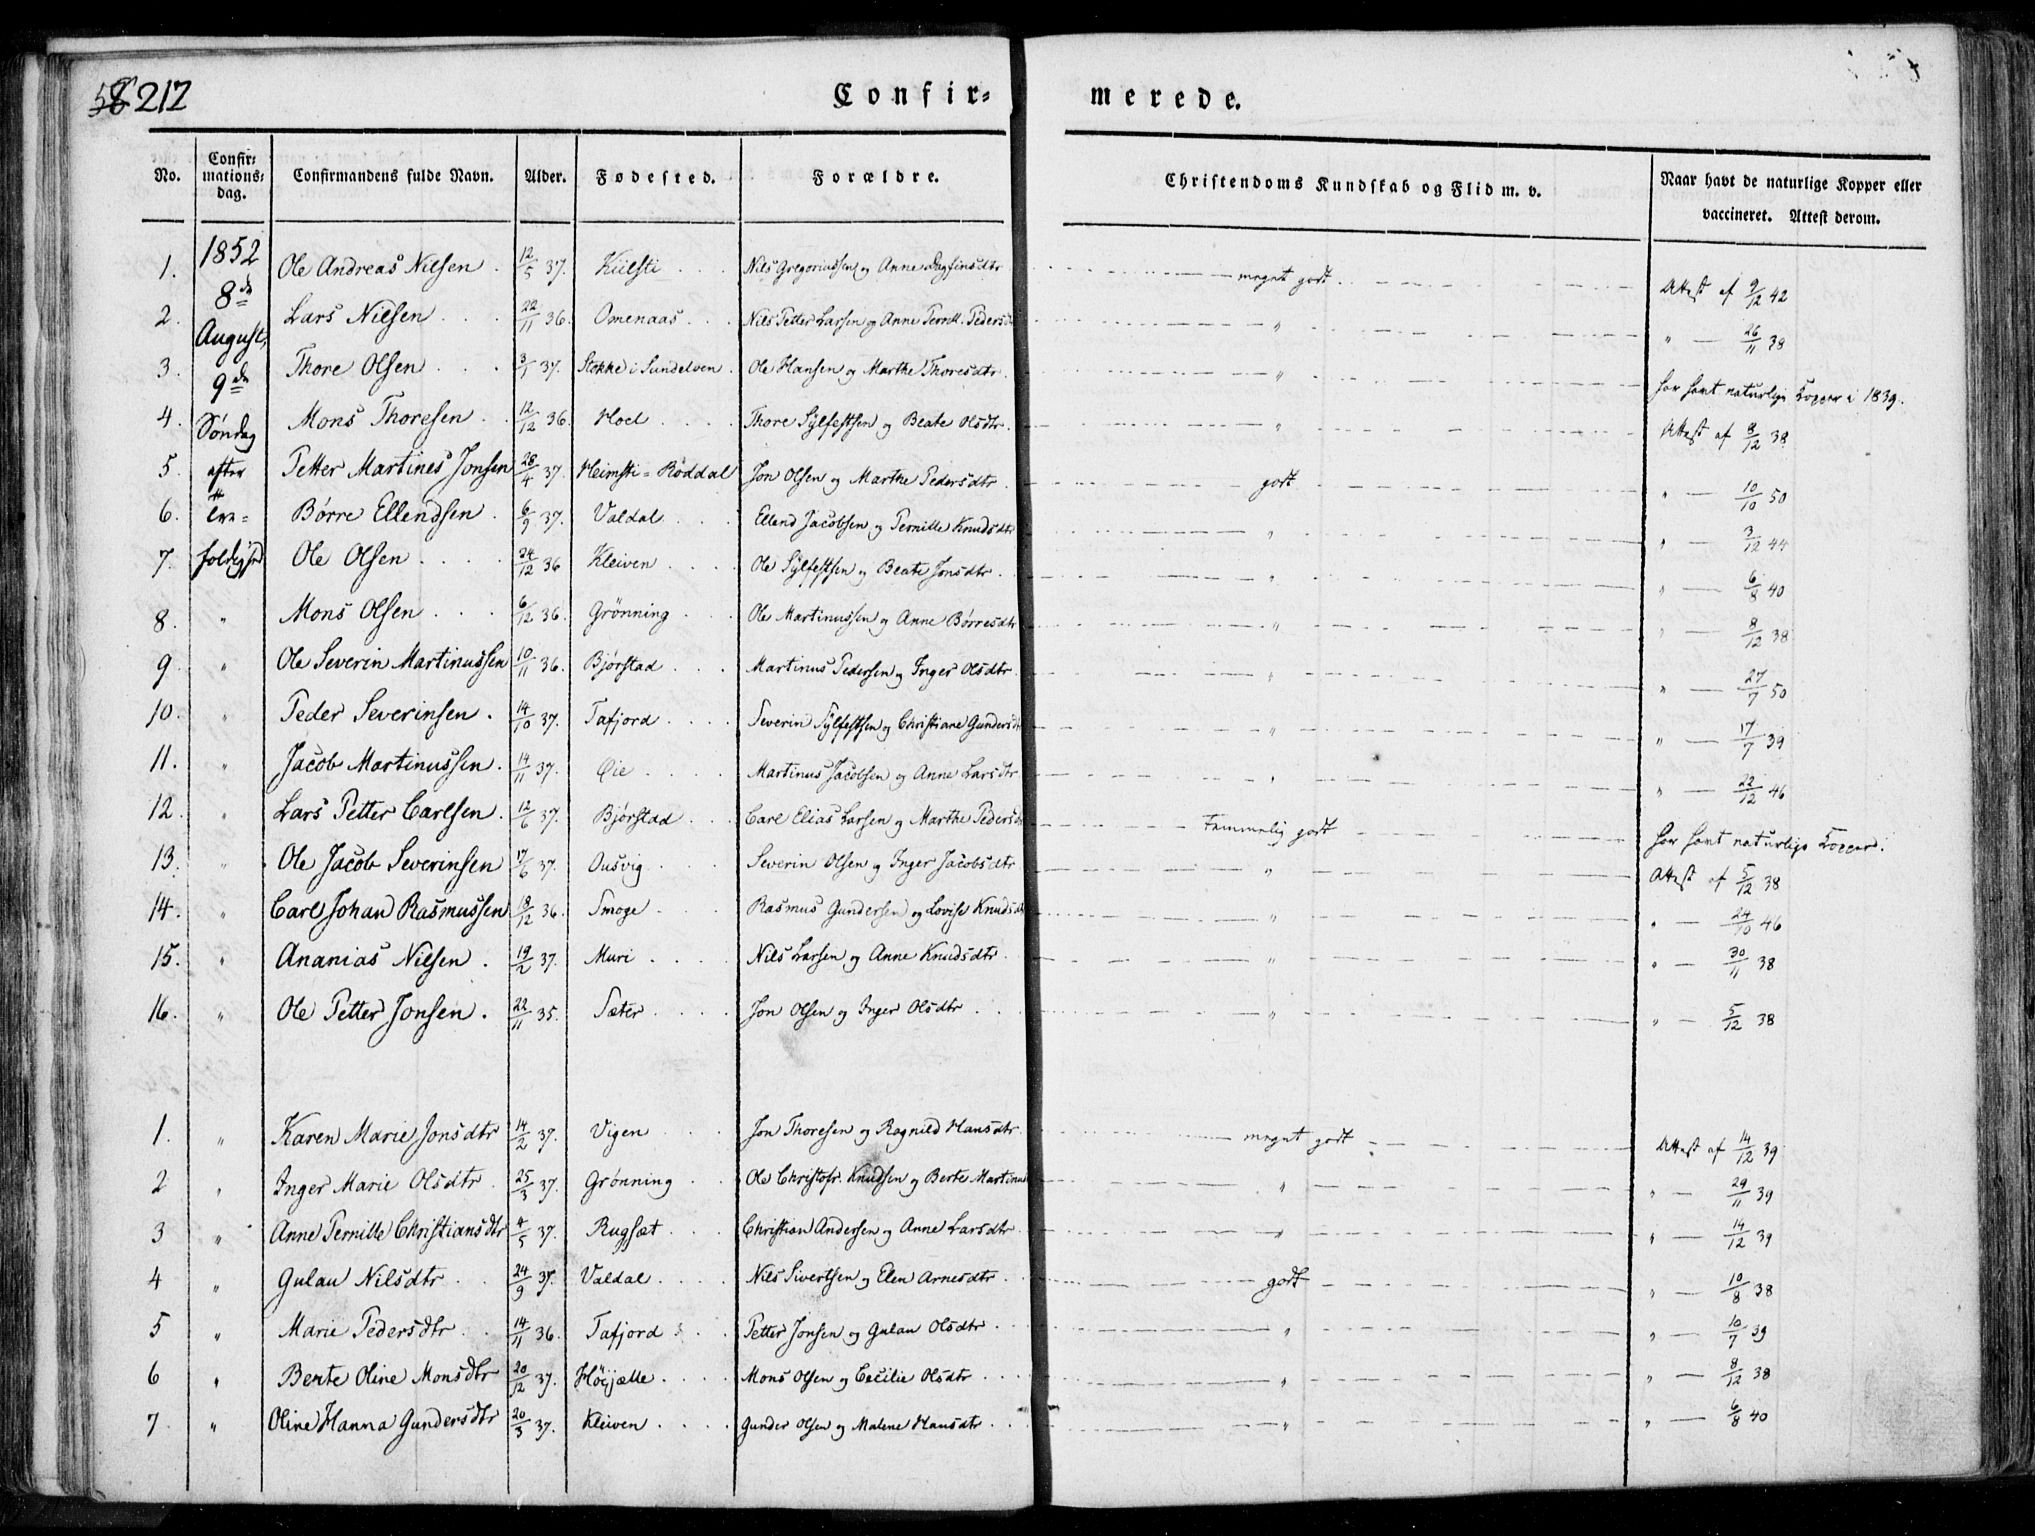 212
Confir= merede.
No. Confir: mations: dag. Confirmandens fulde Navn. Alder. Fødested. Forældre. Christendoms Kundskab og Flid m. v. Naar havt de naturlige Kopper eller vaccineret. Attest derom.
1852 8de August, 9de Søndag efter
1. Ole Andreas Nilsen . 12/5 37. Kiilsti . . . Nils Gregoriussen og Anne Dagfinsdtr meget godt Attest af 9/12 42
2. Lars Nilsen . . . 22/11 36. Omenaas . . . Nils Petter Larsen og Anne Pernill. Pedersd " " — 26/11 38
3. Thore Olsen . . . 3/1 37. Stokke i Sundelven . Ole Hansen og Marthe Thoresdtr . " har havt naturlige Kopper i 1839.
4. Mons Thoresen . . 12/12 36. Hoel . . . . Thore Sylfestsen og Beate Olsdtr . " Attest af 8/12 38
5. Petter Martines Jonsen 28/4 37. Heimsti = Røddal Jon Olsen og Marthe Pedersdtr . godt " — 10/10 50
6. Børre Ellendsen . 6/9 37. Valdal . . . Ellend Jacobsen og Pernille Knudsdtr " " — 3/12 44
7. Ole Olsen . . . . 24/12 36 Kleiven . . . Ole Sylfestsen og Beate Jonsdtr . " " — 6/8 40
8. " Mons Olsen . . . 6/12 36. Grönning . . Ole Martinussen og Anne Børresdtr " " — 8/12 38
9. " Ole Severin Martinussen 10/11 36. Bjørstad . . . Martinus Pedersen og Inger Olsdtr . " " — 27/7 50
10. " Peder Severinsen . 14/10 37. Tafjord . . . . Severin Sylfestsen og Christiane Gundersd " " — 17/7 39
11. " Jacob Martinussen . 14/11 37. Øie . . . . Martinus Jacobsen og Anne Larsdtr " " — 22/12 46
12. " Lars Petter Carlsen . 12/6 37. Bjørstad . . Carl Elias Larsen og Marthe Pedersd Temmelig godt har havt naturlige Kopper.
13. " Ole Jacob Severinsen 17/6 37. Ousvig . . . Severin Olsen og Inger Jacobsdtr " Attest af 5/12 38
14. " Carl Johan Rasmussen 18/12 36. Smoge . . . Rasmus Gundersen og Lovise Knudsd " " — 24/10 46
15. " Ananias Nilsen . 19/2 37. Muri . . . . Nils Larsen og Anne Knudsdtr . " " — 30/11 38
16. " Ole Petter Jonsen . 22/11 35. Sæter . . . . Jon Olsen og Inger Olsdtr . . . " " — 5/12 38
1. " Karen Marie Jonsdtr 14/2 37. Vigen . . . Jon Thoresen og Ragnild Hansdtr . meget godt Attest af 14/12 39
2 " Inger Marie Olsdtr . 25/3 37. Grønning . . Ole Christofr. Knudsen og Berte Martinus " " — 29/11 39
3 " Anne Pernille Christiansdtr 4/5 37. Rugsæt . . . Christian Andersen og Anne Larsdtr . " " — 14/12 39
4 " Gulau Nilsdtr . . 24/9 37. Valdal . . . . Nils Sivertsen og Elen Arnesdtr . godt " — 10/8 38
5 " Marie Pedersdtr . . 14/11 36. Tafjord . . Petter Jonsen og Gulau Olsdtr . . " " — 10/7 39
6 " Berte Oline Monsdtr 20/12 37. . . . . Mons Olsen og Cecilie Olsdtr . . . " " — 8/12 38
7 " Oline Hanna Gundersdtr 20/3 37. Kleiven . . . . Gunder Olsen og Malene Hansdtr . . . " " — 6/8 40